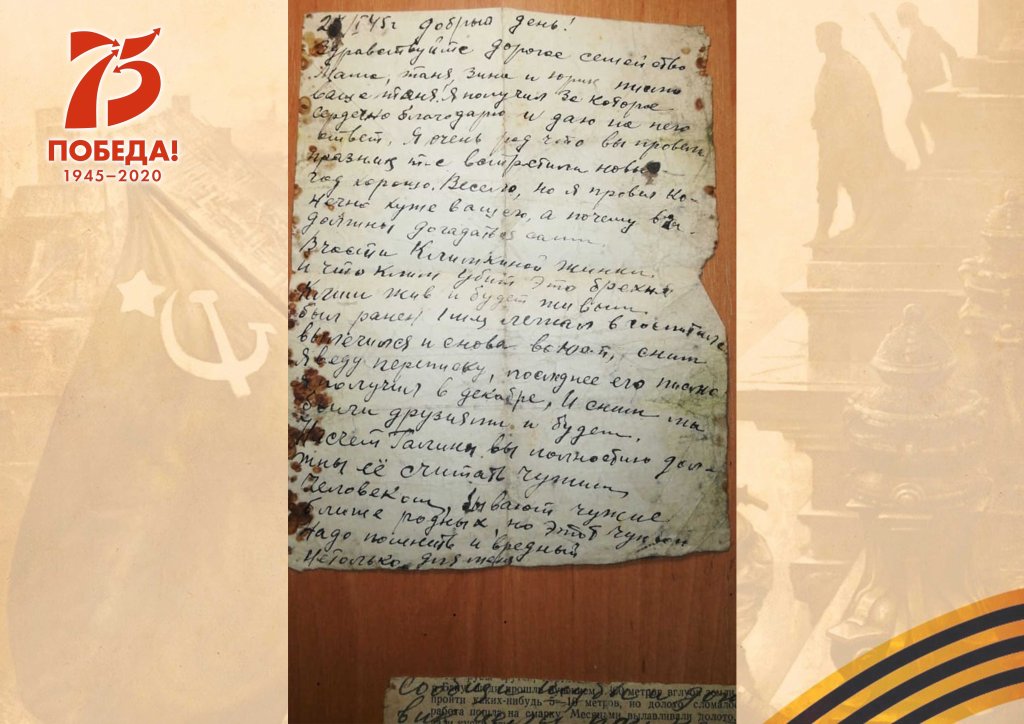 75
ПОБЕДА!
1945–2020
I 45г добрый день!
Здравствуйте дорогое семейство
Мама, таня, Зина и юрик письмо
ваше таня! Я получил за которое
сердечно благодарю и даю на него
ответ, Я очень рад что вы провели
празник т-е встретили новый
год хорошо. Весело, но я провел ко-
нечно хуже вашего, а почему вы
должны догадаться сами.
Вчасти Климкиной жинки
и что Клим убит это брехня
жив и будет живым
был ранен лежал в госпитале
вылечился и снова воюет, сним
Я веду переписку, последнее его письмо
я получил в декабре, И сним мы
были друзьями и будем.
Насчет Галины вы полностью дол-
жны её считать чужим
человеком, бывают чужие
ближе родных, но этот чужой
надо помнить и вредный
нетолько для меня
Сообщи
прошла метров вглубь земли
пройти каких-нибудь 5–10 метров, но долото сломало
работа пошла на смарку. Месяцами вылавливали долото,